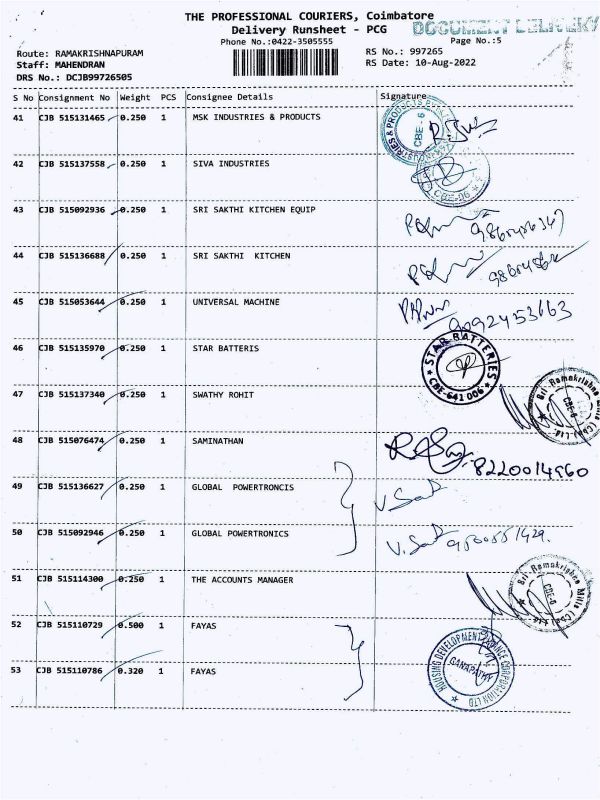 THE PROFESSIONAL COURIERS, Coimbatore
DOCUMENT DELIVERY
Delivery Runsheet - PCG
Phone No.:0422-3505555
Page No.:5
Route: RAMAKRISHNAPURAM
RS No.: 997265
Staff: MAHENDRAN
RS Date: 10-Aug-2022
DRS No.: DCJB99726505
S No Consignment No Weight PCS Consignee Details Signature
41 CJB 515131465 0.250 1 MSK INDUSTRIES & PRODUCTS
CBE - 6
42 CJB 515137558 0.250 1 SIVA INDUSTRIES
CBE-06
43 CJB 515092936 0.250 1 SRI SAKTHI KITCHEN EQUIP
44 CJB 515136688 0.250 1 SRI SAKTHI KITCHEN
45 CJB 515053644 0.250 1 UNIVERSAL MACHINE
9092453663
46 CJB 515135970 0.250 1 STAR BATTERIS
STAR BATTERIES
CBE-641 006
47 CJB 515137340 0.250 1 SWATHY ROHIT
Sri Ramakrishna Mills (Cbe) Ltd
CBE-6
48 CJB 515076474 0.250 1 SAMINATHAN
8220014960
49 CJB 515136627 0.250 1 GLOBAL POWERTRONCIS
50 CJB 515092946 0.250 1 GLOBAL POWERTRONICS
51 CJB 515114300 0.250 1 THE ACCOUNTS MANAGER
Sri Ramakrishna Mills (Cbe) Ltd
CBE-6
52 CJB 515110729 0.500 1 FAYAS
53 CJB 515110786 0.320 1 FAYAS
HOUSING DEVELOPMENT FINANCE CORPORATION LTD
GANAPATHY